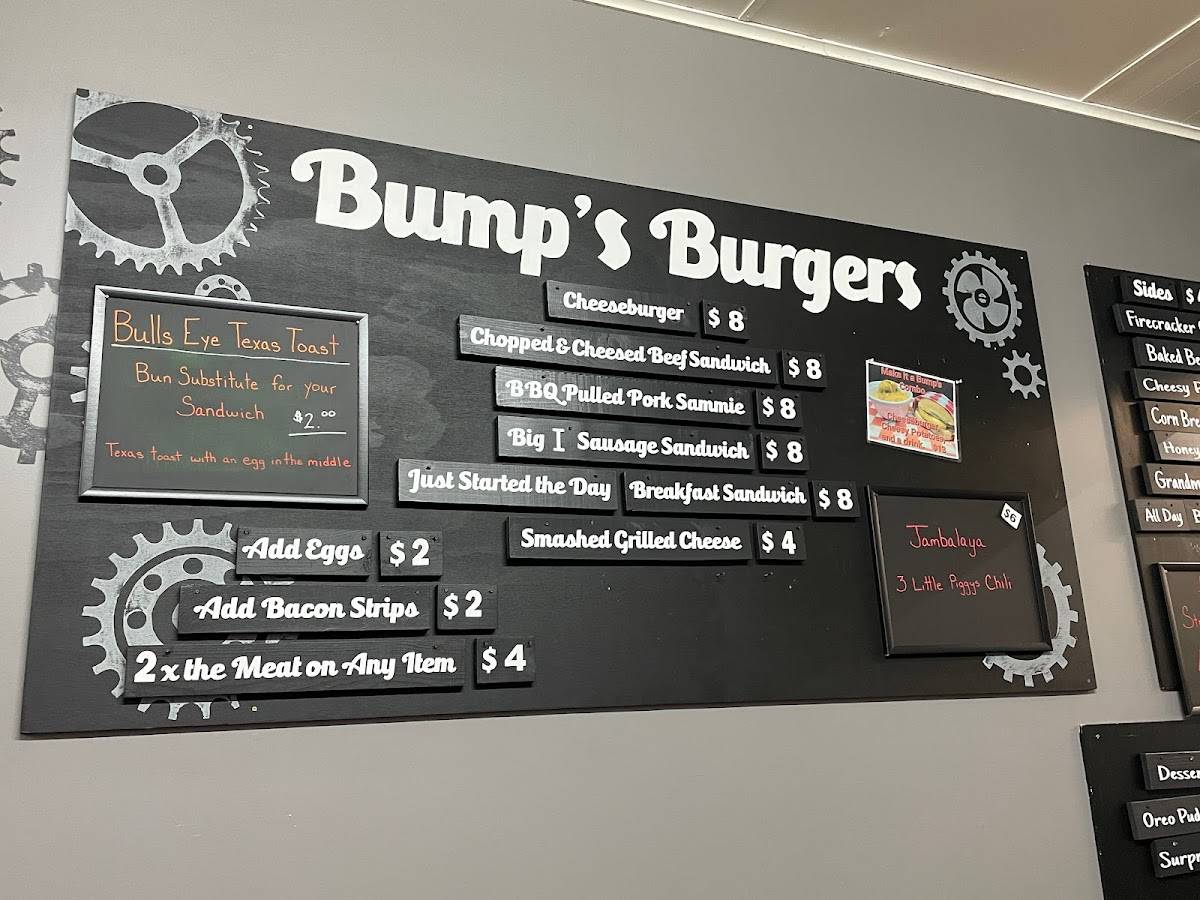 Bump's Burgers
Bulls Eye Texas Toast
Bun Substitute for your
Sandwich $2.00
Texas toast with an egg in the middle
Cheeseburger $ 8
Chopped & Cheesed Beef Sandwich $ 8
BBQ Pulled Pork Sammie $ 8
Big I Sausage Sandwich $ 8
Just Started the Day Breakfast Sandwich $ 8
Smashed Grilled Cheese $ 4
Add Eggs $ 2
Add Bacon Strips $ 2
2 x the Meat on Any Item $ 4
Make it a Bump's
Combo
Cheeseburger,
Cheesy Potatoes
and a drink...
$6
Jambalaya
3 Little Piggys Chili
Sides $
Firecracker
Baked
Cheesy
Corn
Honey
All Day
Oreo